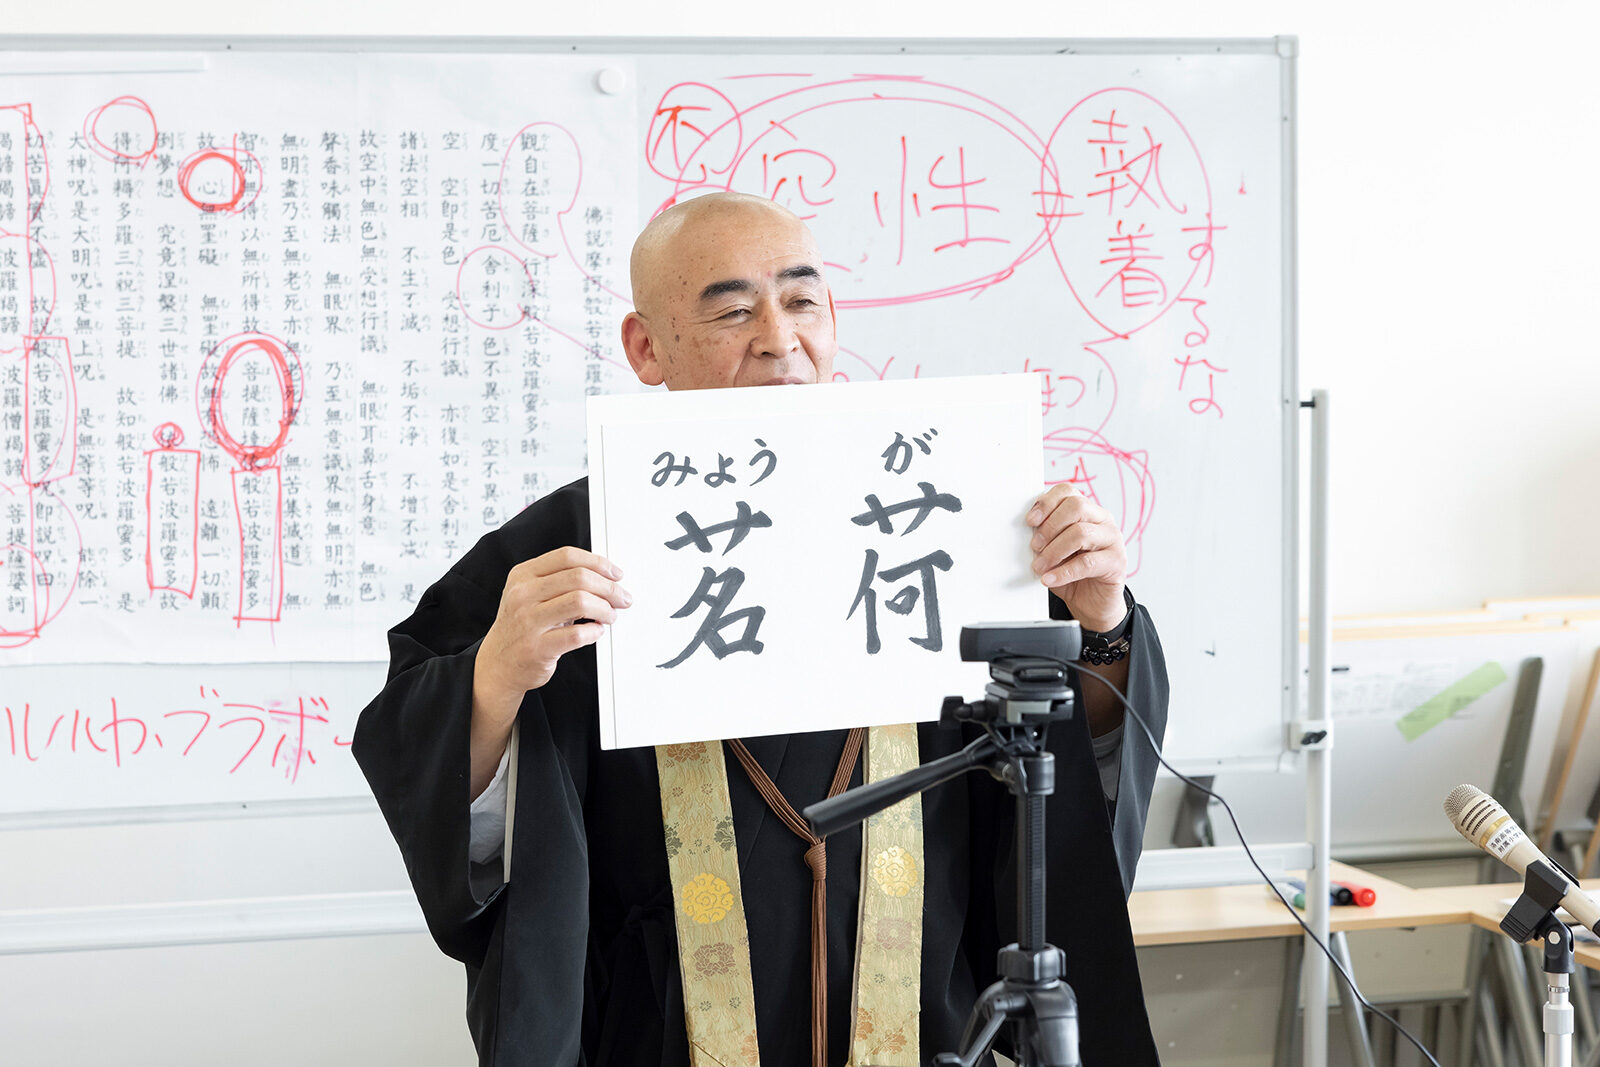 みょうが
茗荷
不
空性=執着
するな
佛説摩訶般若波羅蜜
觀自在菩薩 行深般若波羅蜜多時 照見
度一切苦厄 舍利子 色不異空 空不異色
空 空即是色 受想行識 亦復如是 舍利子
諸法空相 不生不滅 不垢不淨 不增不減 是
故空中無色無受想行識 無眼耳鼻舌身意 無色
聲香味觸法 無眼界 乃至無意識界 無無明亦無
無明盡乃至無老死亦無老死盡 無苦集滅道 無
智亦無得以無所得故 菩提薩埵 依般若波羅蜜多
故 心無罣礙 無罣礙故無有恐怖 遠離一切顚
倒夢想 究竟涅槃三世諸佛 依般若波羅蜜多故
得阿耨多羅三藐三菩提 故知般若波羅蜜多 是
大神呪是大明呪是無上呪 是無等等呪 能除一
切苦眞實不虛 故説般若波羅蜜多呪即説呪曰
揭諦揭諦 波羅揭諦 波羅僧揭諦 菩提薩婆訶
ブラボー